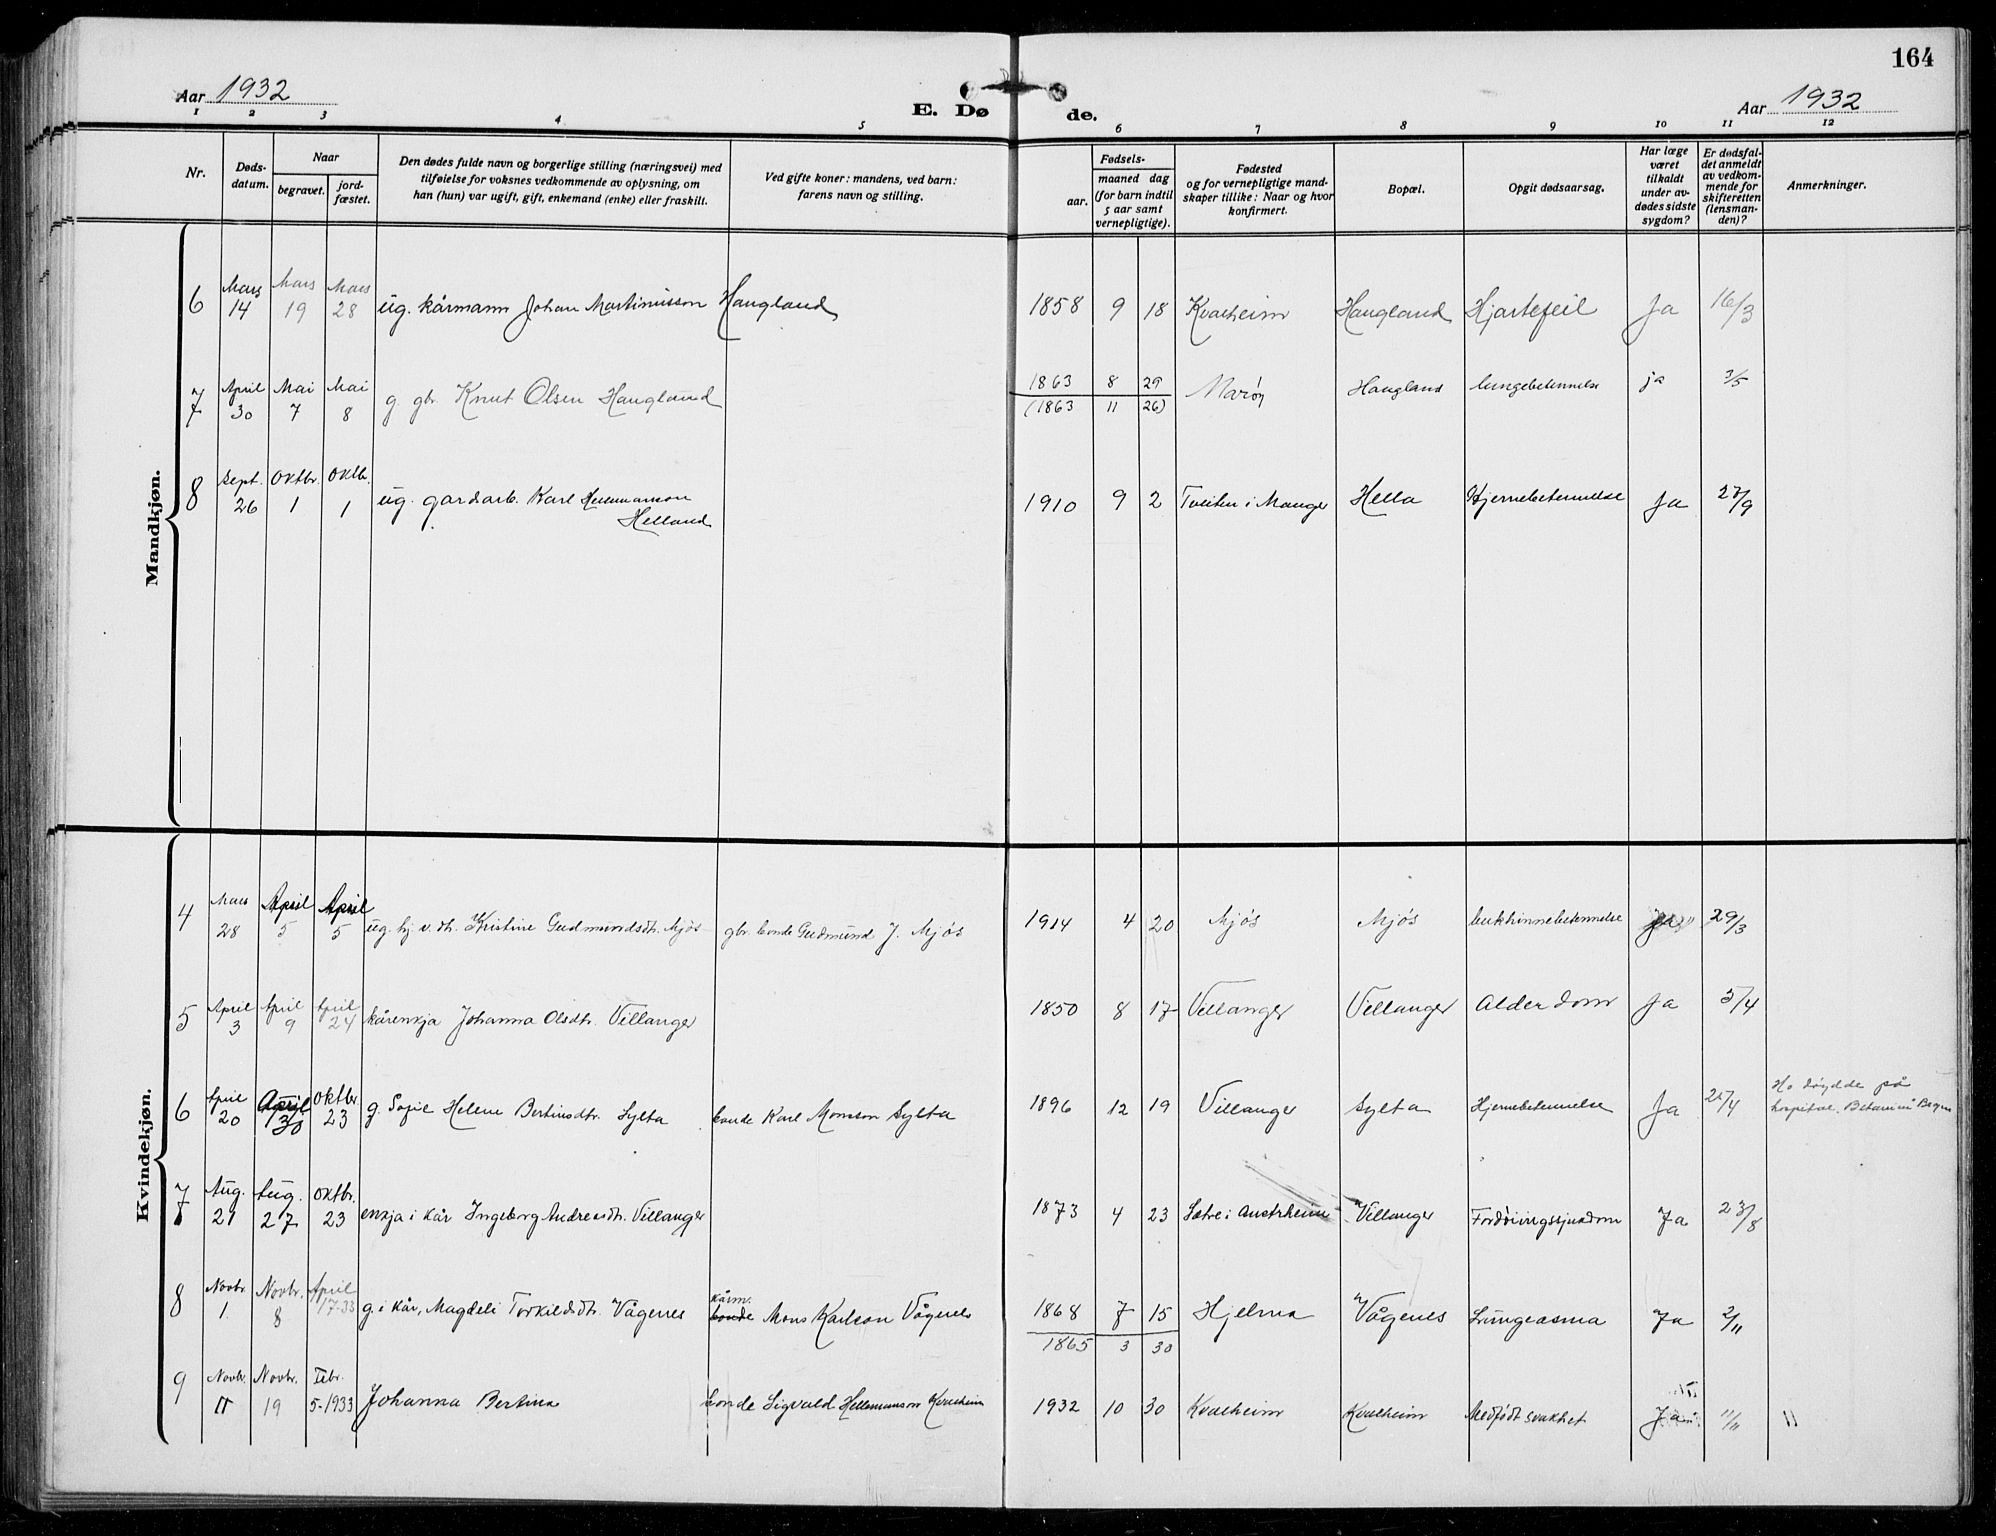 164
Aar 1932
E. Døde.
Aar 1932
1 2 3 4 5 6 7 8 9 10 11 12
Nr.
Døds-datum.
Naar
begravet.
jord-fæstet.
Den dødes fulde navn og borgerlige stilling (næringsvei) med
tilføielse for voksnes vedkommende av oplysning, om
han (hun) var ugift, gift, enkemand (enke) eller fraskilt.
Ved gifte koner: mandens, ved barn:
farens navn og stilling.
Fødsels-
aar.
maaned dag
(for barn indtil
5 aar samt
vernepligtige).
Fødested
og for vernepligtige mand-
skaper tillike: Naar og hvor
konfirmert.
Bopæl.
Opgit dødsaarsag.
Har læge
været
tilkaldt
under av-
dødes sidste
sygdom?
Er dødsfal-
det anmeldt
av vedkom-
mende for
skifteretten
(lensman-
den)?
Anmerkninger.
Mandkjøn.
6 Mars 14 Mars 19 Mars 28 ug. kårmann Johan Martinusson Haugland 1858 9 18 Kvalheim Haugland Hjartefeil Ja 16/3
7 April 30 Mai 7 Mai 8 g gbr. Knut Olsen Haugland 1863 8 29 Marøy Haugland lungebetennelse ja 3/5
(1863 11 26)
8 Sept. 26 Oktbr. 1 Oktbr. 1 ug. gardarb. Karl Hellemanson 1910 9 2 Tveiten i Manger Hella Hjernebetennelse Ja 27/9
Helland
Kvindekjøn.
4 Mars 28 April 5 April 5 ug. hj. v. dt. Kristine Gudmundsdt. Mjøs gbr. bonde Gudmund J. Mjøs 1914 4 20 Mjøs Mjøs bukhinnebetennelse Ja 29/3
5 April 3 April 9 April 24 kårenkja Johanna Olsdtr. Villanger 1850 8 17 Villanger Villanger Alderdom Ja 5/4
6 April 20 April 30 Oktbr. 23 g. Sofie Helene Bertinsdtr. Sylta bonde Karl Monsson Sylta 1896 12 19 Villanger Sylta Hjernebetennelse Ja /4 Ho døydde på
hospital. "Betanien"
7 Aug. 21 Aug. 27 Oktbr. 23 enkja i kår Ingeborg Andreasdt. Villanger 1873 4 23 Sætre i Austrheim Villanger Fordøiingssjukdom Ja 23/8
8 Novbr. 1 Novbr. 8 April 17-33 g. i kår, Magdeli Torkildsdtr. Vågenes kårm. bonde Mons Karlson Vågenes 1868 7 15 Hjelma Vågenes Lungeasma Ja 2/11
1865 3 30
9 Novbr. 11 Novbr. 19 Febr. 5-1933 Johanna Bertina bonde Sigvald Hellemanson Kvalheim 1932 10 30 Kvalheim Kvalheim Medfødt svakhet Ja 11/11